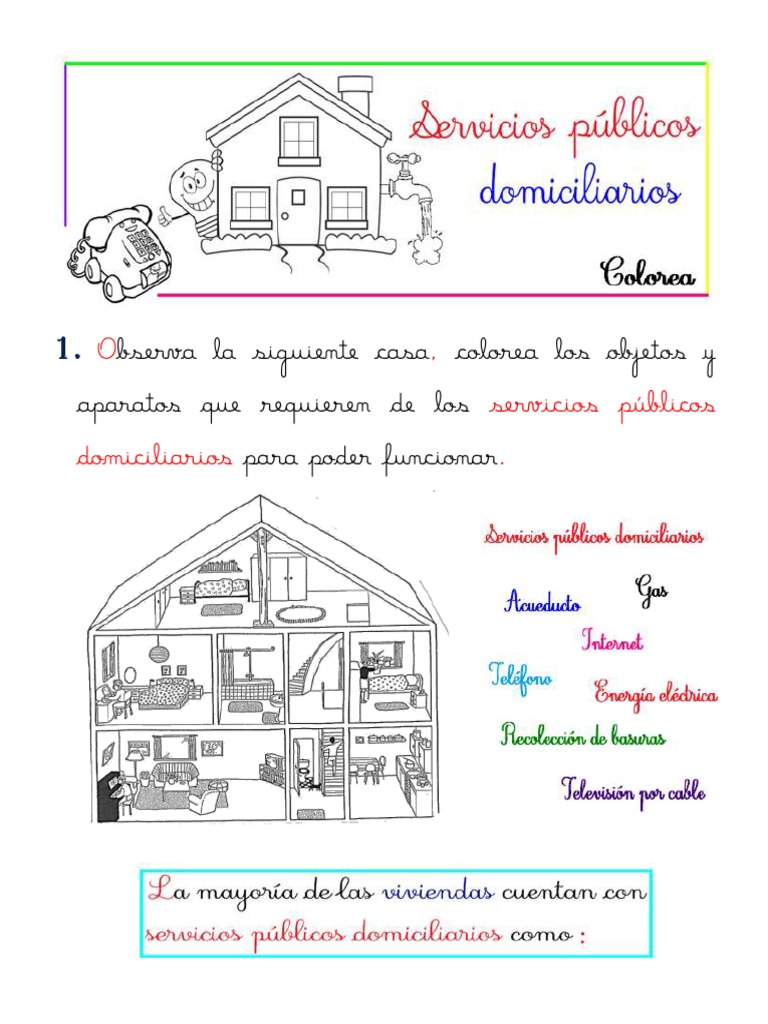 Servicios públicos
domiciliarios
Colorea
1. Observa la siguiente casa, colorea los objetos y
aparatos que requieren de los servicios públicos
domiciliarios para poder funcionar.
Servicios públicos domiciliarios
Gas
Acueducto
Internet
Teléfono
Energía eléctrica
Recolección de basuras
Televisión por cable
La mayoría de las viviendas cuentan con
servicios públicos domiciliarios como :